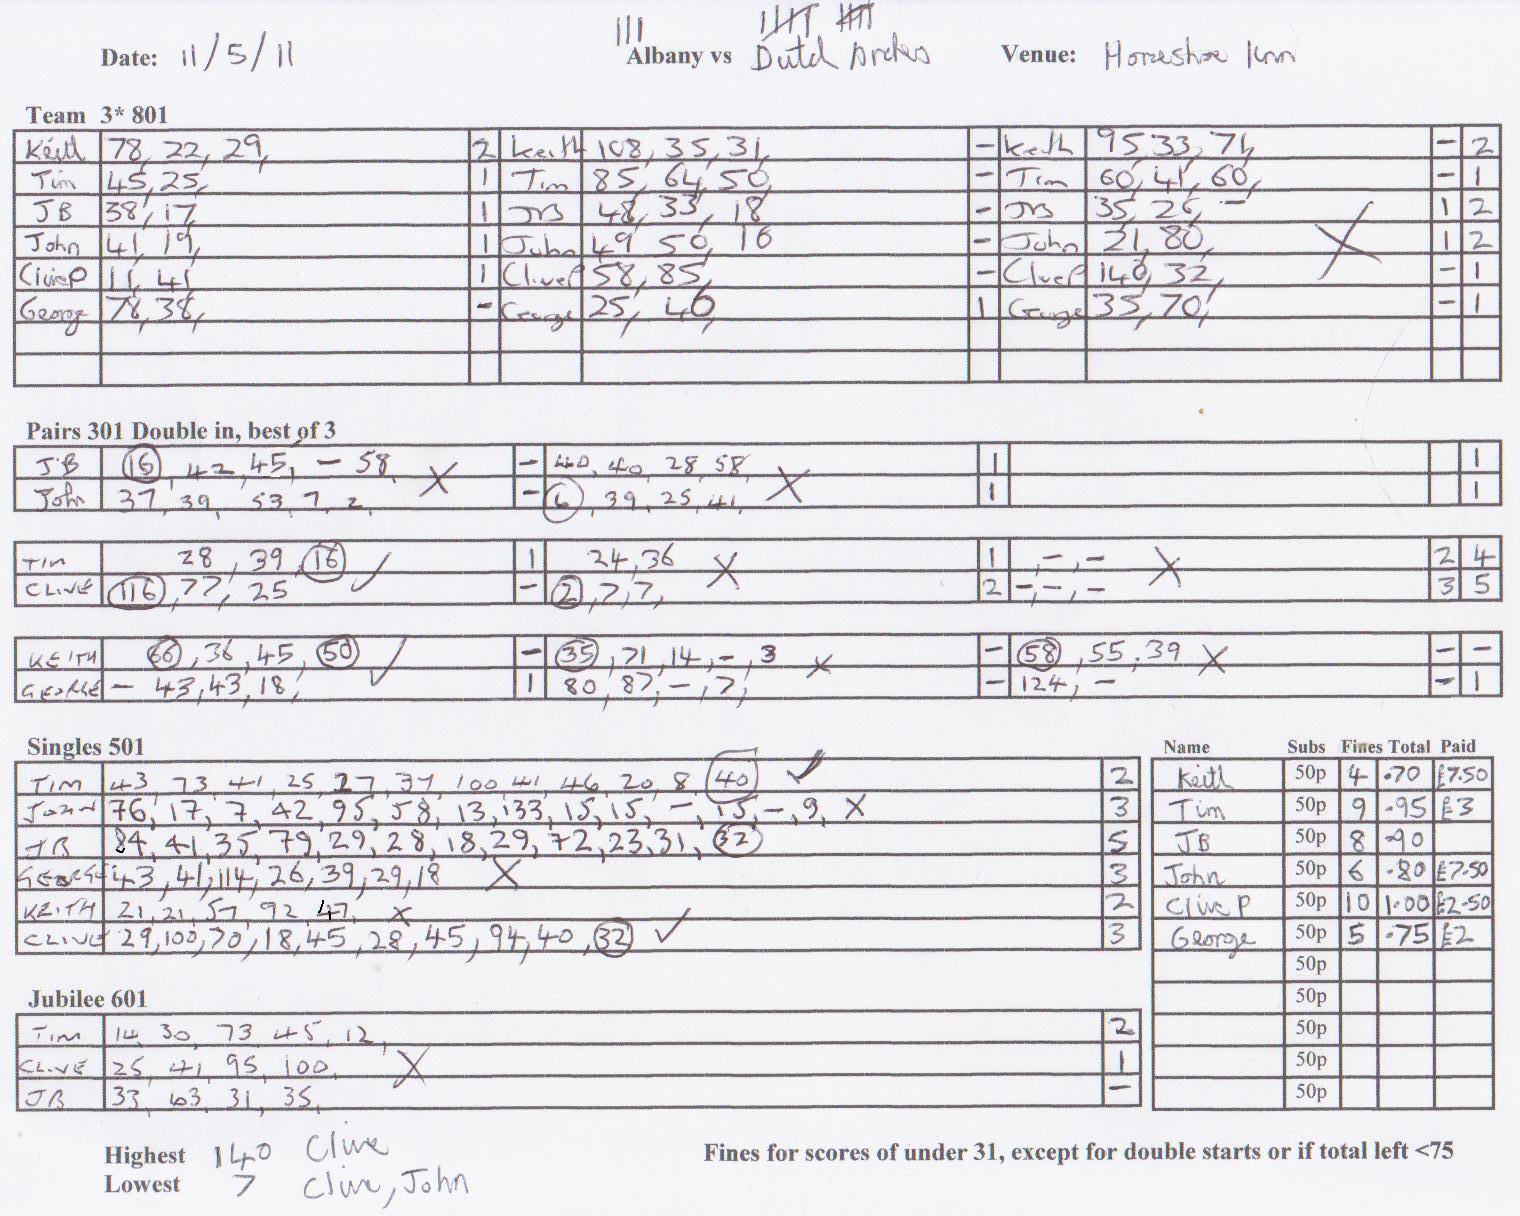 Date: 11/5/11 Albany vs Dutch Arches Venue: Horseshoe Inn
Team 3* 801
Keith 78, 22, 29, 2 Keith 108, 35, 31, - Keith 95, 33, 71, - 2
Tim 45, 25, 1 Tim 85, 64, 50, - Tim 60, 41, 60, - 1
JB 38, 17, 1 JB 48, 33, 18 - JB 35, 26, - 1 2
John 41, 19, 1 John 49 50, 16 - John 21, 80, X 1 2
CliveP 11, 41, 1 CliveP 58, 85, - CliveP 140, 32, - 1
George 78, 38, - George 25, 46, 1 George 35, 70, - 1
Pairs 301 Double in, best of 3
JB 16, 42, 45, - 58, X - 40, 40, 28, 58, X 1 1
John 37, 39, 53, 7, 2, - 6, 39, 25, 41, 1 1
TIM 28, 39, 16 ✓ 1 24, 36 X 1 , -, - X 2 4
CLIVE 116, 77, 25 - 2, 7, 7, 2 -, -, - 3 5
KEITH 66, 36, 45, 50 ✓ - 35, 71, 14, -, 3 X - 58, 55, 39 X - -
GEORGE - 43, 43, 18, 1 80, 87, -, 7, - 124, - - 1
Singles 501
TIM 43, 73, 41, 25, 27, 37, 100, 41, 46, 20, 8, 40 ✓ 2
JOHN 76, 17, 7, 42, 95, 58, 13, 133, 15, 15, -, 15, -, 9, X 3
JB 84, 41, 35, 79, 29, 28, 18, 29, 72, 23, 31, 32 5
GEORGE 43, 41, 114, 26, 39, 29, 18 X 3
KEITH 21, 21, 57, 92, 47, X 2
CLIVE 29, 100, 70, 18, 45, 28, 45, 94, 40, 32 ✓ 3
Name Subs Fines Total Paid
Keith 50p 4 .70 £7.50
Tim 50p 9 .95 £3
JB 50p 8 .90
John 50p 6 .80 £7.50
Clive P 50p 10 1.00 £2.50
George 50p 5 .75 £2
50p
50p
50p
50p
50p
Jubilee 601
TIM 14, 30, 73, 45, 12, 2
CLIVE 25, 41, 95, 100, X 1
JB 33, 63, 31, 35, -
Highest 140 Clive
Lowest 7 Clive, John
Fines for scores of under 31, except for double starts or if total left <75